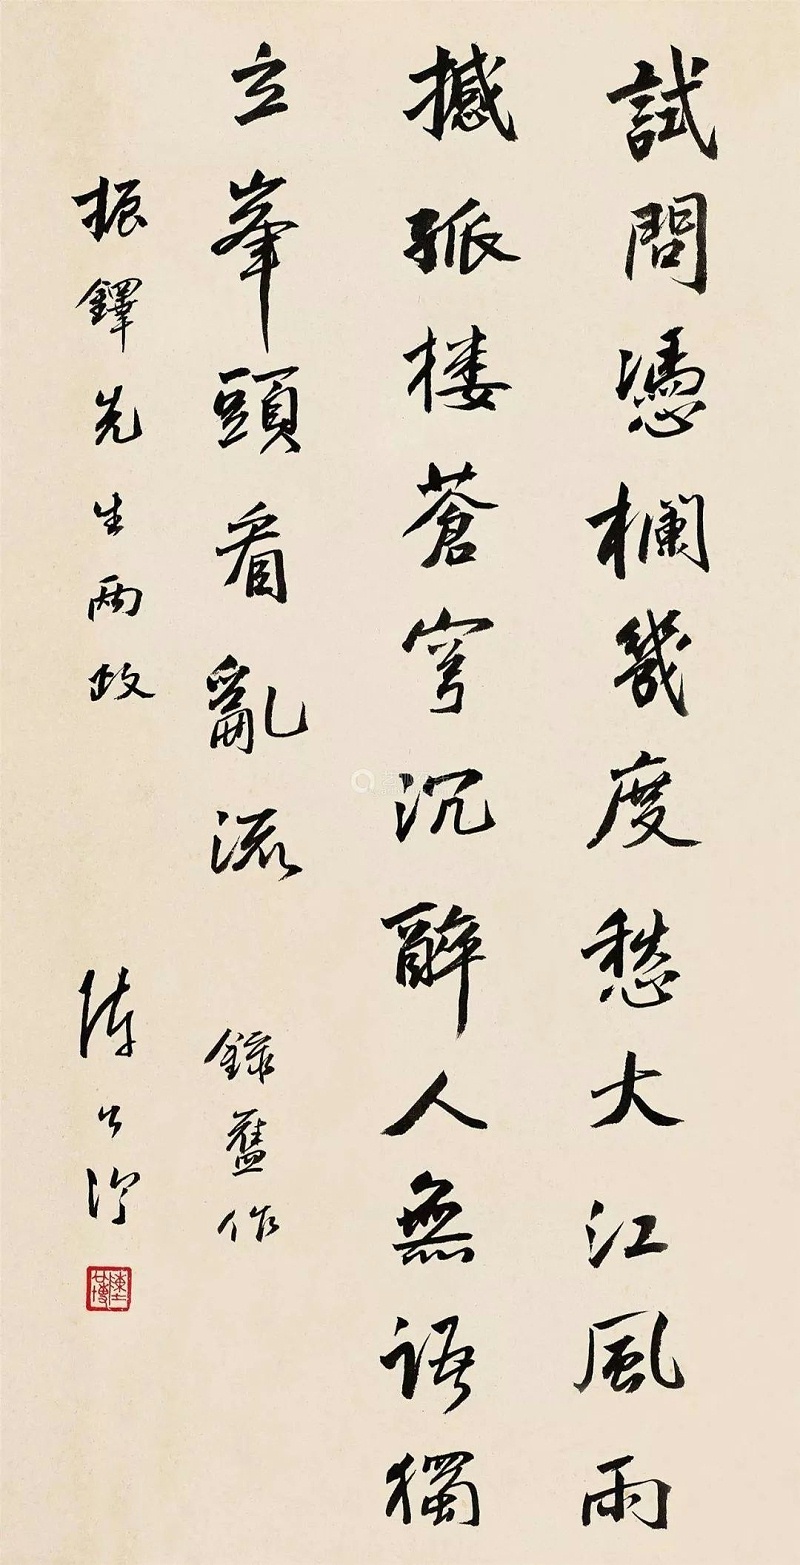 試問憑欄幾度愁大江風雨
撼孤楼蒼穹沉醉人無語獨
立峯頭看亂流 錄舊作
振鐸先生兩政 陳公博